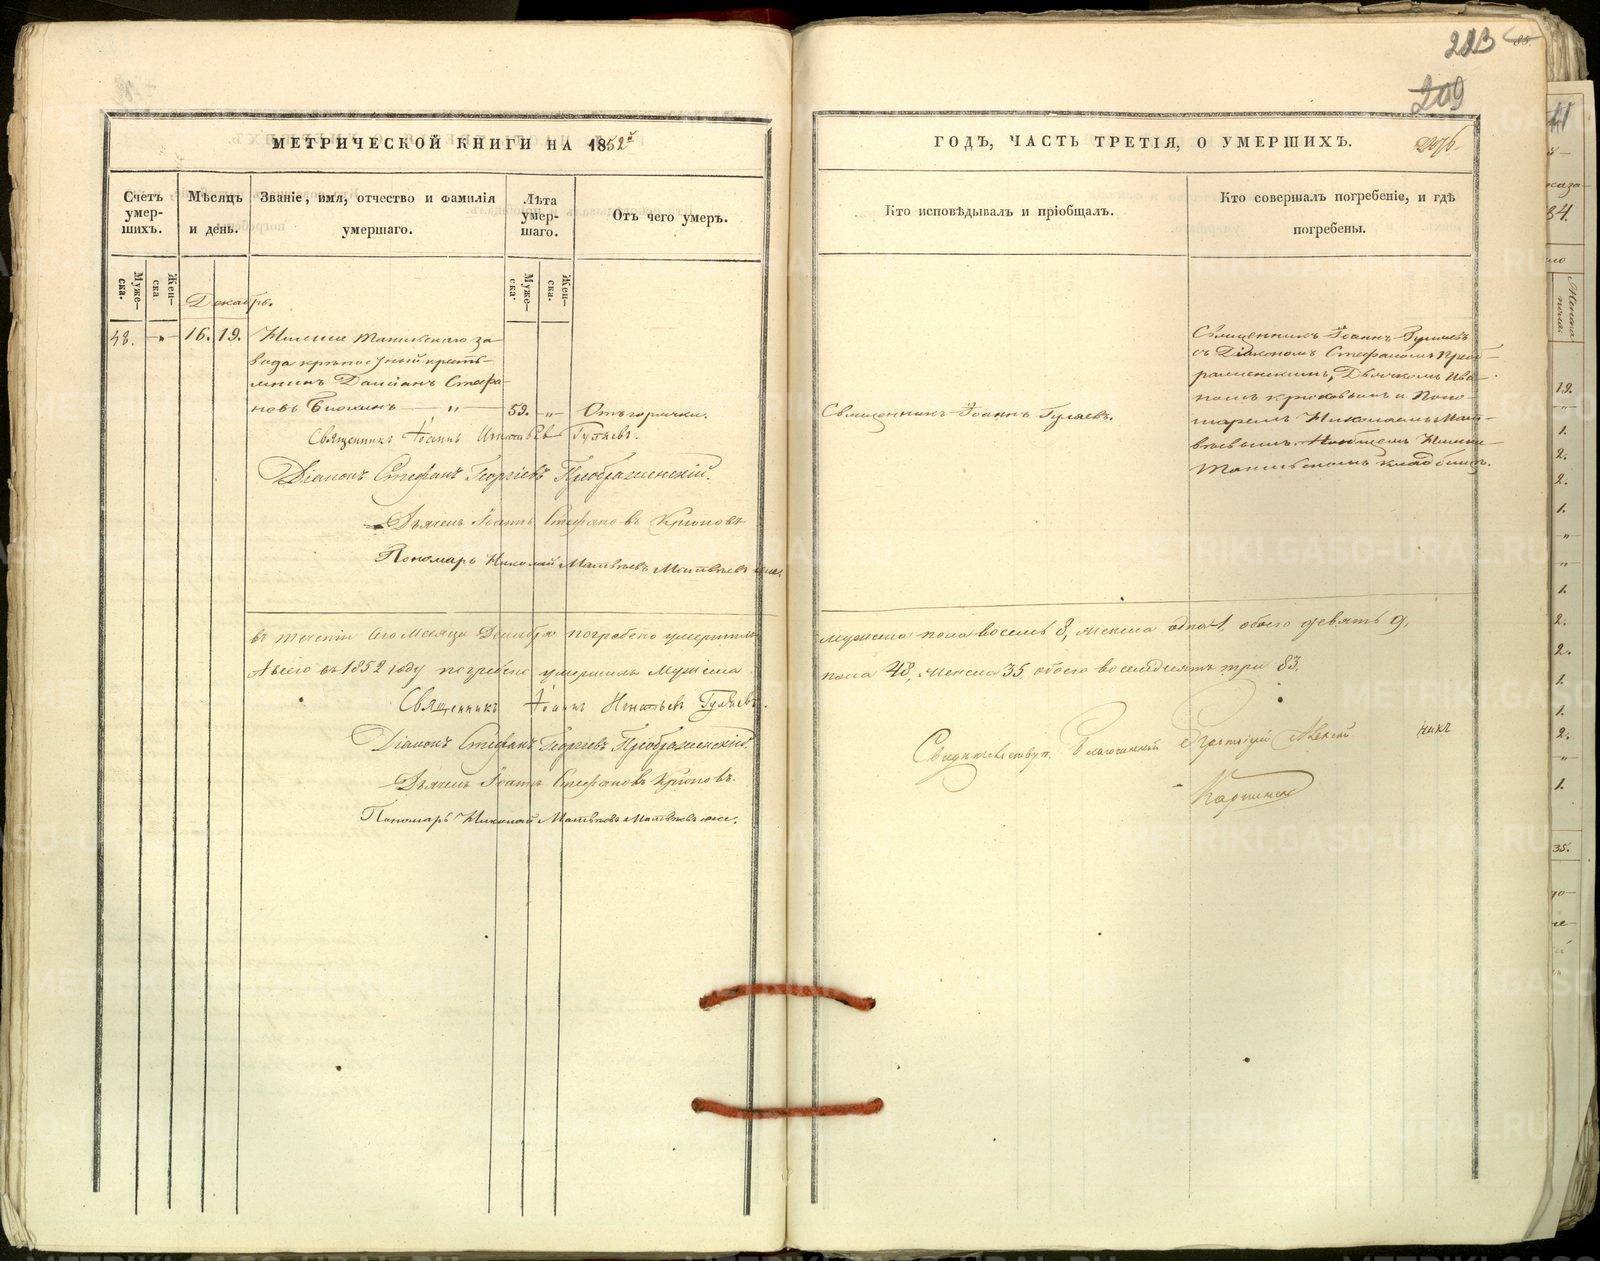 223 85.
209
МЕТРИЧЕСКОЙ КНИГИ НА 1852й
ГОДЪ, ЧАСТЬ ТРЕТІЯ, О УМЕРШИХЪ.
Счетъ умер-шихъ.
Мѣсяцъ и день.
Званіе, имя, отчество и фамилія умершаго.
Лѣта умер-шаго.
Отъ чего умеръ.
Кто исповѣдывалъ и пріобщалъ.
Кто совершалъ погребеніе, и гдѣ погребены.
Муже-ска.
Жен-ска
Муже-ска.
Жен-ска.
Декабрь.
48. „ 16. 19. Нижне Тагильскаго за-
вода крѣпостный кресть-
янинъ Даміанъ Стефа-
новъ — „ — 59. „ Отъ горячки.
Священникъ Іоаннъ Гуляевъ.
Священникъ Іоаннъ Гуляевъ
съ Діакономъ Стефаномъ Преоб-
раженскимъ, Дьячкомъ Ива-
номъ Крюковымъ и Поно-
маремъ Николаемъ Мат-
вѣевымъ. На общемъ Нижне-
Тагильскомъ кладбищѣ.
Священникъ Іоаннъ Игнатьевъ Гуляевъ.
Діаконъ Стефанъ Георгіевъ Преображенскій.
Дьячекъ Іоаннъ Стефановъ Крюковъ
Пономарь Николай Матвѣевъ Матвѣевъ
въ теченіи сего месяца Декабря погребено умершихъ
мужеска пола восемь 8, женска одна 1, обоего девять 9,
А всего въ 1852 году погребено умершихъ мужеска
пола 48, женска 35, обоего восемдесятъ три 83.
Священникъ Іоаннъ Игнатьевъ Гуляевъ.
Діаконъ Стефанъ Георгіевъ Преображенскій.
Дьячекъ Іоаннъ Стефановъ Крюковъ.
Пономарь Николай Матвѣевъ Матвѣевъ же.
Благочинный Протоіерей Алексій
Карпинскій
METRIKI.GASO-URAL.RU